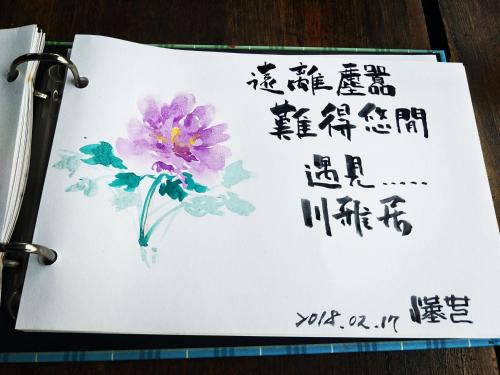 遠離塵囂
難得悠閒
遇見.....
川雅居
2018.02.17